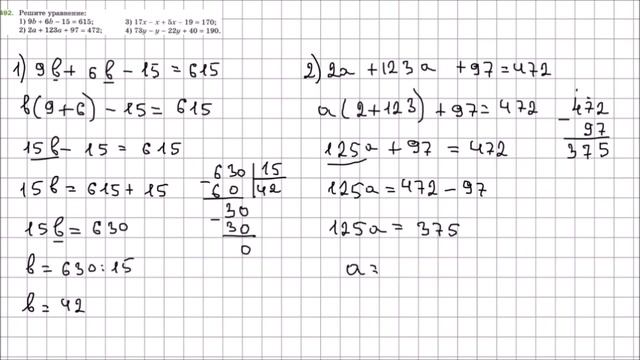 492. Решите уравнение:
1) 9b + 6b − 15 = 615;
2) 2a + 123a + 97 = 472;
3) 17x − x + 5x − 19 = 170;
4) 73y − y − 22y + 40 = 190.
1) 9b + 6b − 15 = 615
b(9+6) − 15 = 615
15b − 15 = 615
15b = 615 + 15
15b = 630
b = 630:15
b = 42
630 15
60 42
30
30
0
2) 2a + 123a + 97 = 472
a(2+123) + 97 = 472
125a + 97 = 472
125a = 472 − 97
125a = 375
a =
472
− 97
375